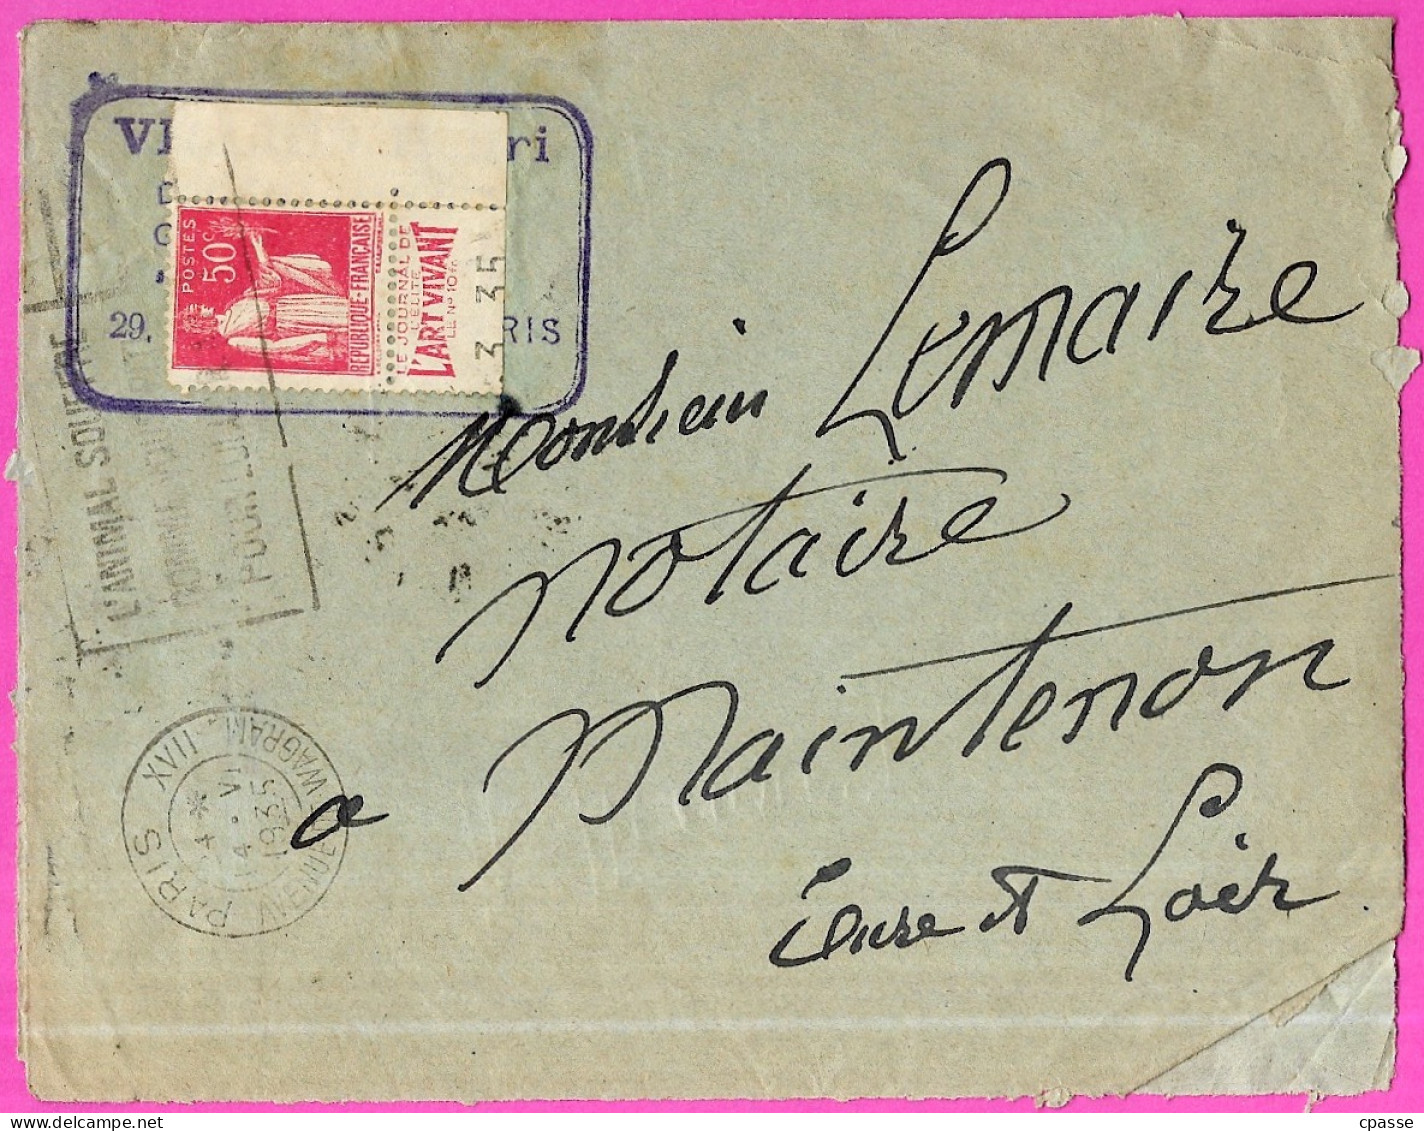 ri
29.
RIS
POSTES
50c
RÉPUBLIQUE-FRANÇAISE
LE JOURNAL DE
L'ÉLITE
L'ART VIVANT
LE N° 10 fr.
3 35
L'ANIMAL SOUFFRE
COMME
POUR LUI
PARIS XVII
AVENUE WAGRAM
14 - VI
1935
Monsieur Lemaire
notaire
a Maintenon
Eure et Loir
cpasse